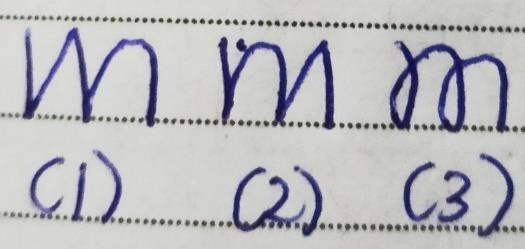 m m m
(1) (2) (3)